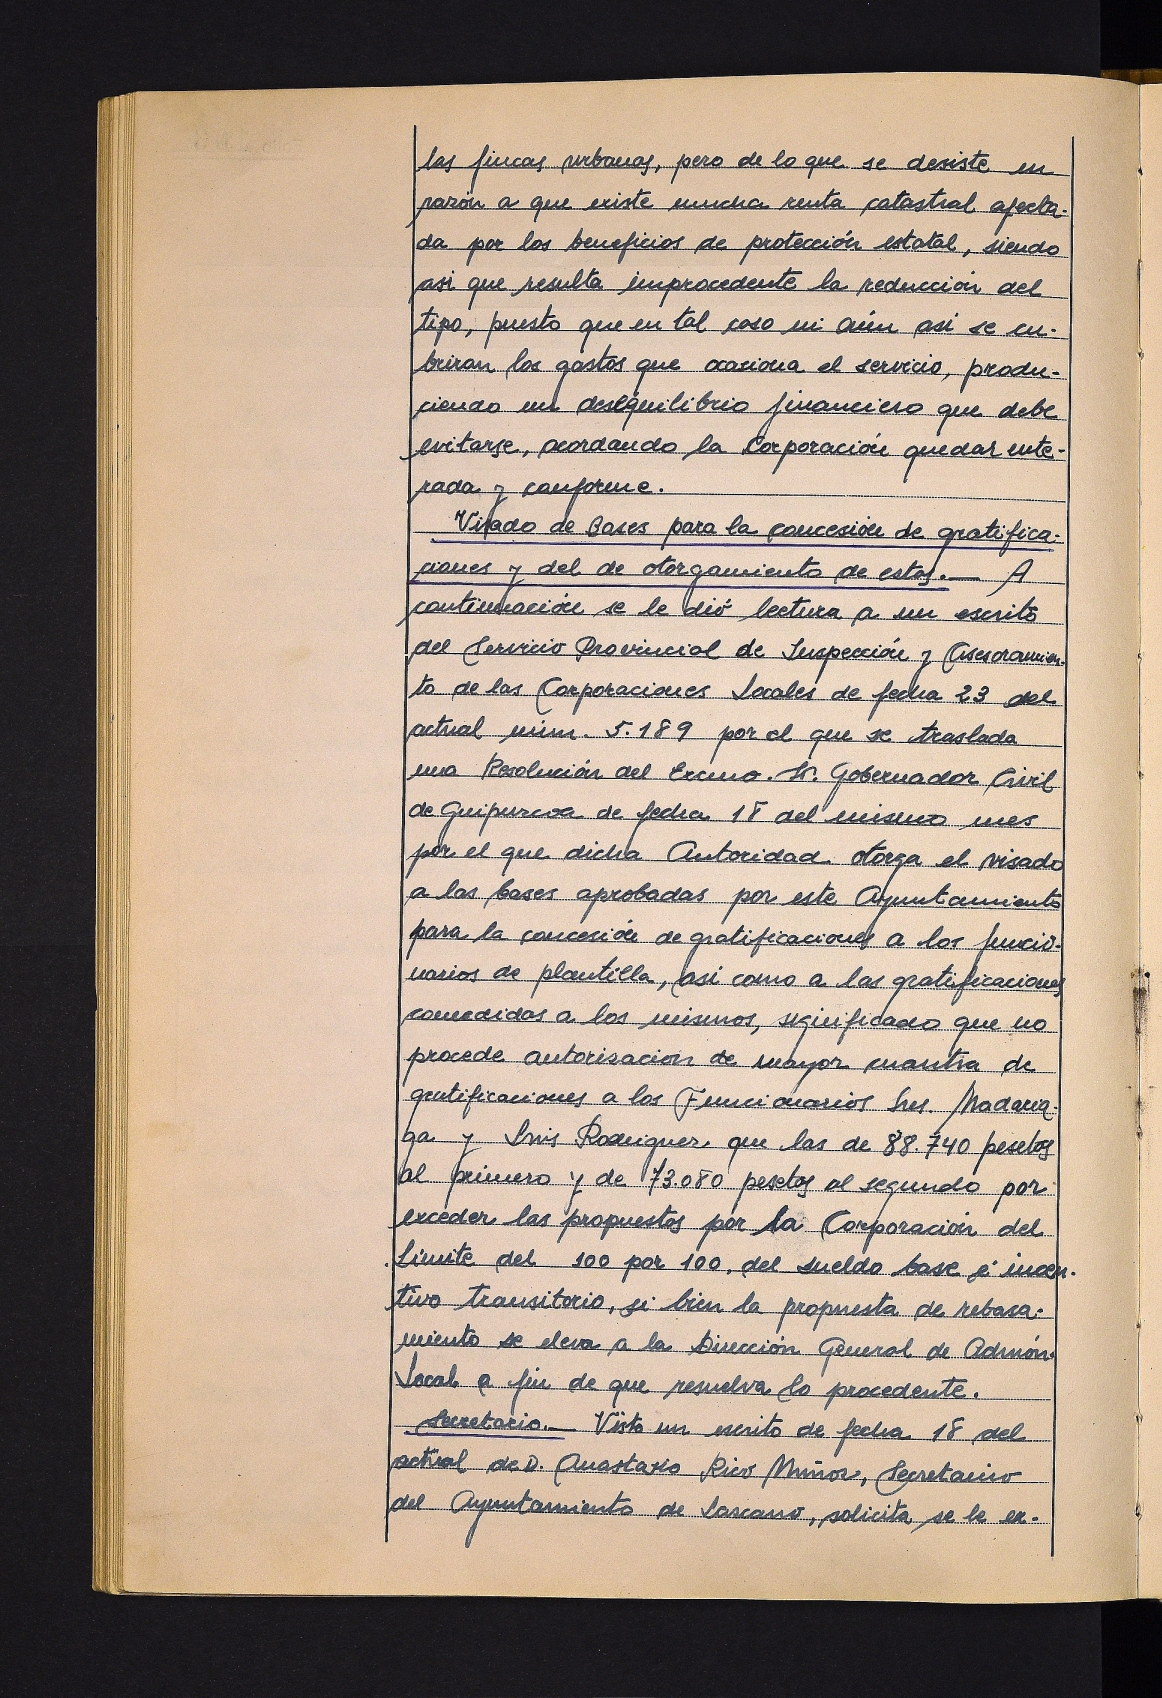 las fincas urbanas, pero de lo que se desiste en
razón a que existe mucha renta catastral afecta-
da por los beneficios de protección estatal, siendo
asi que resulta improcedente la reducción del
tipo, puesto que en tal caso ni aún asi se cu-
briran los gastos que ocasiona el servicio, produ-
ciendo un desequilibrio financiero que debe
evitarse, acordando la Corporación quedar ente-
rada y conforme.
Visado de Bases para la concesión de gratifica-
ciones y del de otorgamiento de estas.— A
continuación se le dió lectura a un escrito
del Servicio Provincial de Inspección y Asesoramien-
to de las Corporaciones Locales de fecha 23 del
actual núm. 5.189 por el que se traslada
una Resolución del Excmo. Sr. Gobernador Civil
de Guipuzcoa de fecha 18 del mismo mes
por el que dicha Autoridad otorga el visado
a las bases aprobadas por este Ayuntamiento
para la concesión de gratificaciones a los funcio-
narios de plantilla, asi como a las gratificaciones
concedidas a los mismos, significado que no
procede autorisacion de mayor cuantia de
gratificaciones a los Funcionarios Sres. Madaria-
ga y Luis Rodriguez que las de 88.740 pesetas
al primero y de 73.080 pesetas al segundo por
exceder las propuestas por la Corporación del
limite del 100 por 100. del sueldo base é incen-
tivo transitorio, si bien la propuesta de rebasa-
miento se eleva a la Dirección General de Admón.
Local a fin de que resuelva lo procedente.
Secretario.— Visto un escrito de fecha 18 del
actual de D. Anastasio Rico Muñoz, Secretario
del Ayuntamiento de Lazcano, solicita se le ex-